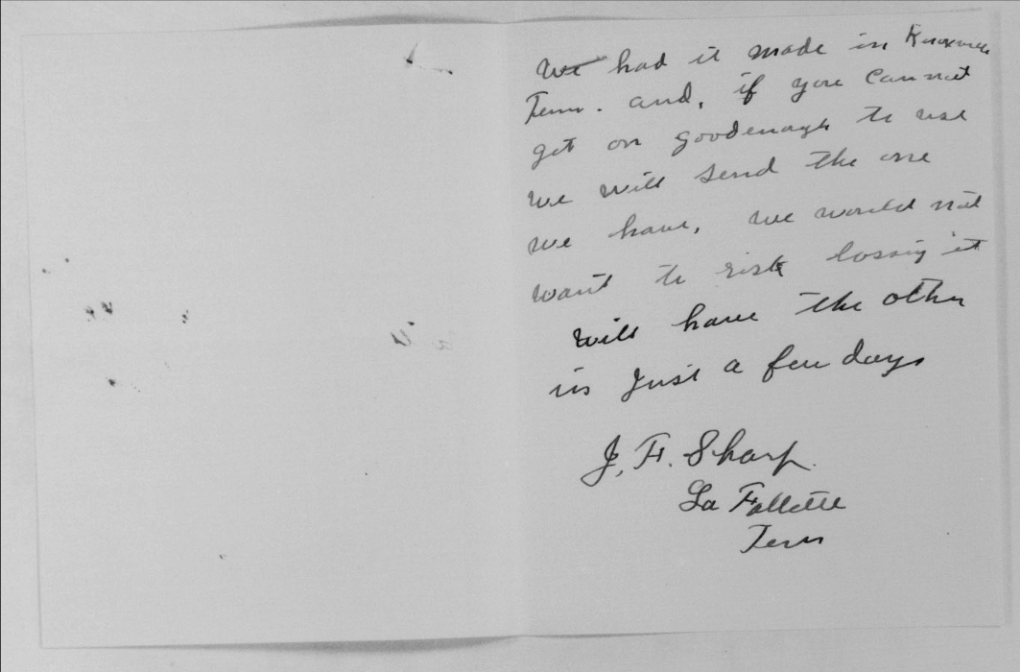 We had it made in Knoxville
Tenn. and, if you cannot
get on goodenough to use
we will send the one
we have, we would not
want to risk lossing it
will have the other
in just a few days
J. F. Sharp.
La Follette
Tenn